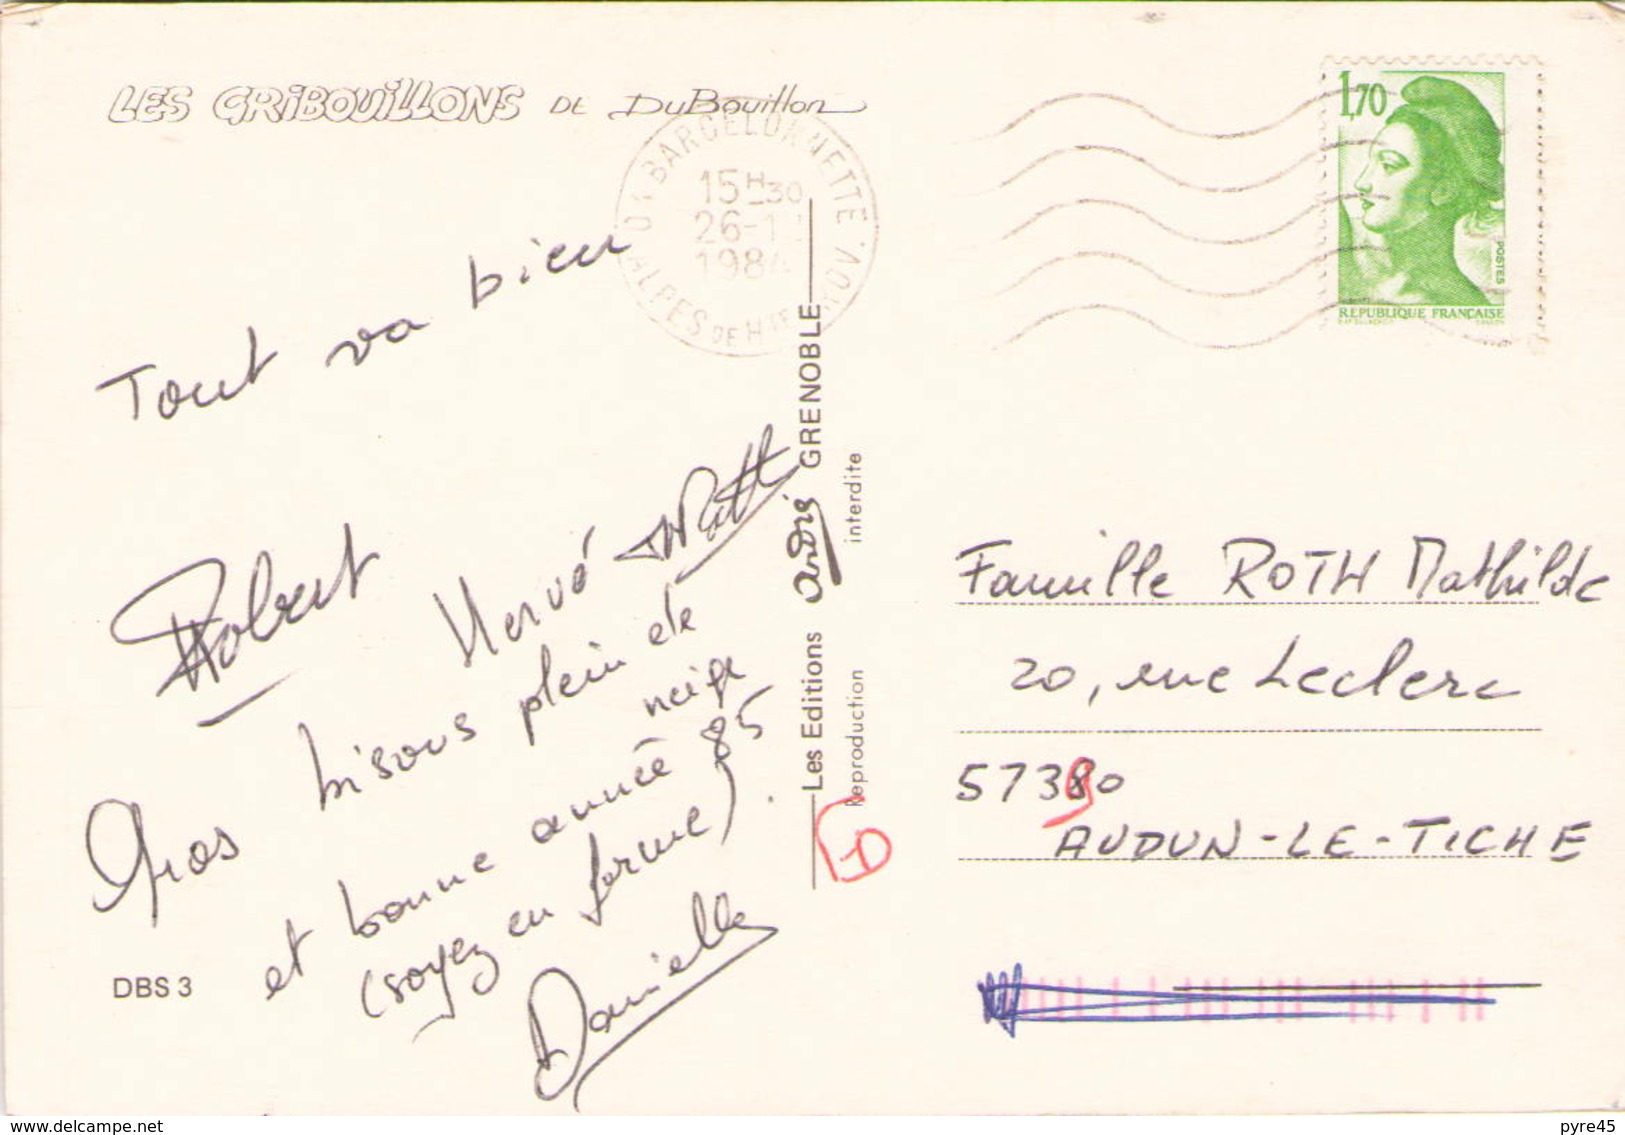 LES GRiBOUiLLONS DE DuBouillon
01 BARCELONNETTE
15H30
26-1
1984
ALPES DE HTE PROV.
1,70
POSTES
REPUBLIQUE FRANÇAISE
Tout va bien
Robert
Hervé
Gros bisous plein de
neige
et bonne année 85
(soyez en forme).
Danielle
DBS 3
Les Editions andis GRENOBLE
Reproduction interdite
Famille ROTH Mathilde
20, rue Leclerc
57390
AUDUN-LE-TICHE
delcampe.net
pyre45